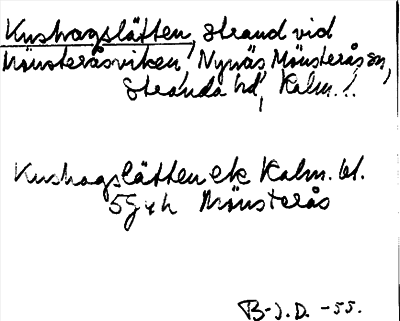 Kushagslätten, strand vid
Mönsteråsviken, Nynäs, Mönsterås sn,
Stranda hd, Kalm. l.
Kushagslätten ek Kalm. bl.
5G4h Mönsterås
B-J. D. -55.